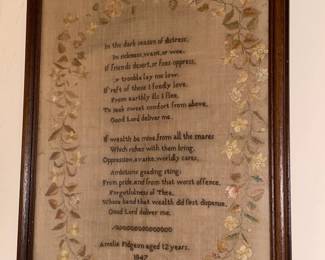 In the dark season of distress,
In sickness, want, or woe.
If friends desert, or foes oppress,
Or trouble lay me low.
If reft of those I fondly love.
From earthly ills I flee,
To seek sweet comfort from above,
Good Lord deliver me.
If wealth be mine, from all the snares
Which riches with them bring.
Oppression, avarice, worldly cares,
Ambitions goading sting;
From pride, and from that worst offence,
Forgetfulness of Thee,
Whose hand that wealth did first dispense,
Good Lord deliver me.
Amelia Pidgeon aged 12 years.
1847